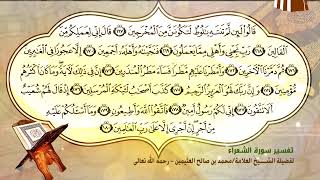 قَالُوا لَئِن لَّمْ تَنتَهِ يَا لُوطُ لَتَكُونَنَّ مِنَ الْمُخْرَجِينَ ﴿١٦٧﴾ قَالَ إِنِّي لِعَمَلِكُم مِّنَ
الْقَالِينَ ﴿١٦٨﴾ رَبِّ نَجِّنِي وَأَهْلِي مِمَّا يَعْمَلُونَ ﴿١٦٩﴾ فَنَجَّيْنَاهُ وَأَهْلَهُ أَجْمَعِينَ ﴿١٧٠﴾ إِلَّا عَجُوزًا فِي الْغَابِرِينَ
﴿١٧١﴾ ثُمَّ دَمَّرْنَا الْآخَرِينَ ﴿١٧٢﴾ وَأَمْطَرْنَا عَلَيْهِم مَّطَرًا فَسَاءَ مَطَرُ الْمُنذَرِينَ ﴿١٧٣﴾ إِنَّ فِي ذَٰلِكَ لَآيَةً وَمَا كَانَ أَكْثَرُهُم
مُّؤْمِنِينَ ﴿١٧٤﴾ وَإِنَّ رَبَّكَ لَهُوَ الْعَزِيزُ الرَّحِيمُ ﴿١٧٥﴾ كَذَّبَ أَصْحَابُ لْـَٔيْكَةِ الْمُرْسَلِينَ ﴿١٧٦﴾ إِذْ قَالَ لَهُمْ شُعَيْبٌ
أَلَا تَتَّقُونَ ﴿١٧٧﴾ إِنِّي لَكُمْ رَسُولٌ أَمِينٌ ﴿١٧٨﴾ فَاتَّقُوا اللَّهَ وَأَطِيعُونِ ﴿١٧٩﴾ وَمَا أَسْأَلُكُمْ عَلَيْهِ
مِنْ أَجْرٍ إِنْ أَجْرِيَ إِلَّا عَلَىٰ رَبِّ الْعَالَمِينَ ﴿١٨٠﴾
تفسير سورة الشعراء
لفضيلة الشيخ العلامة/محمد بن صالح العثيمين - رحمه الله تعالى